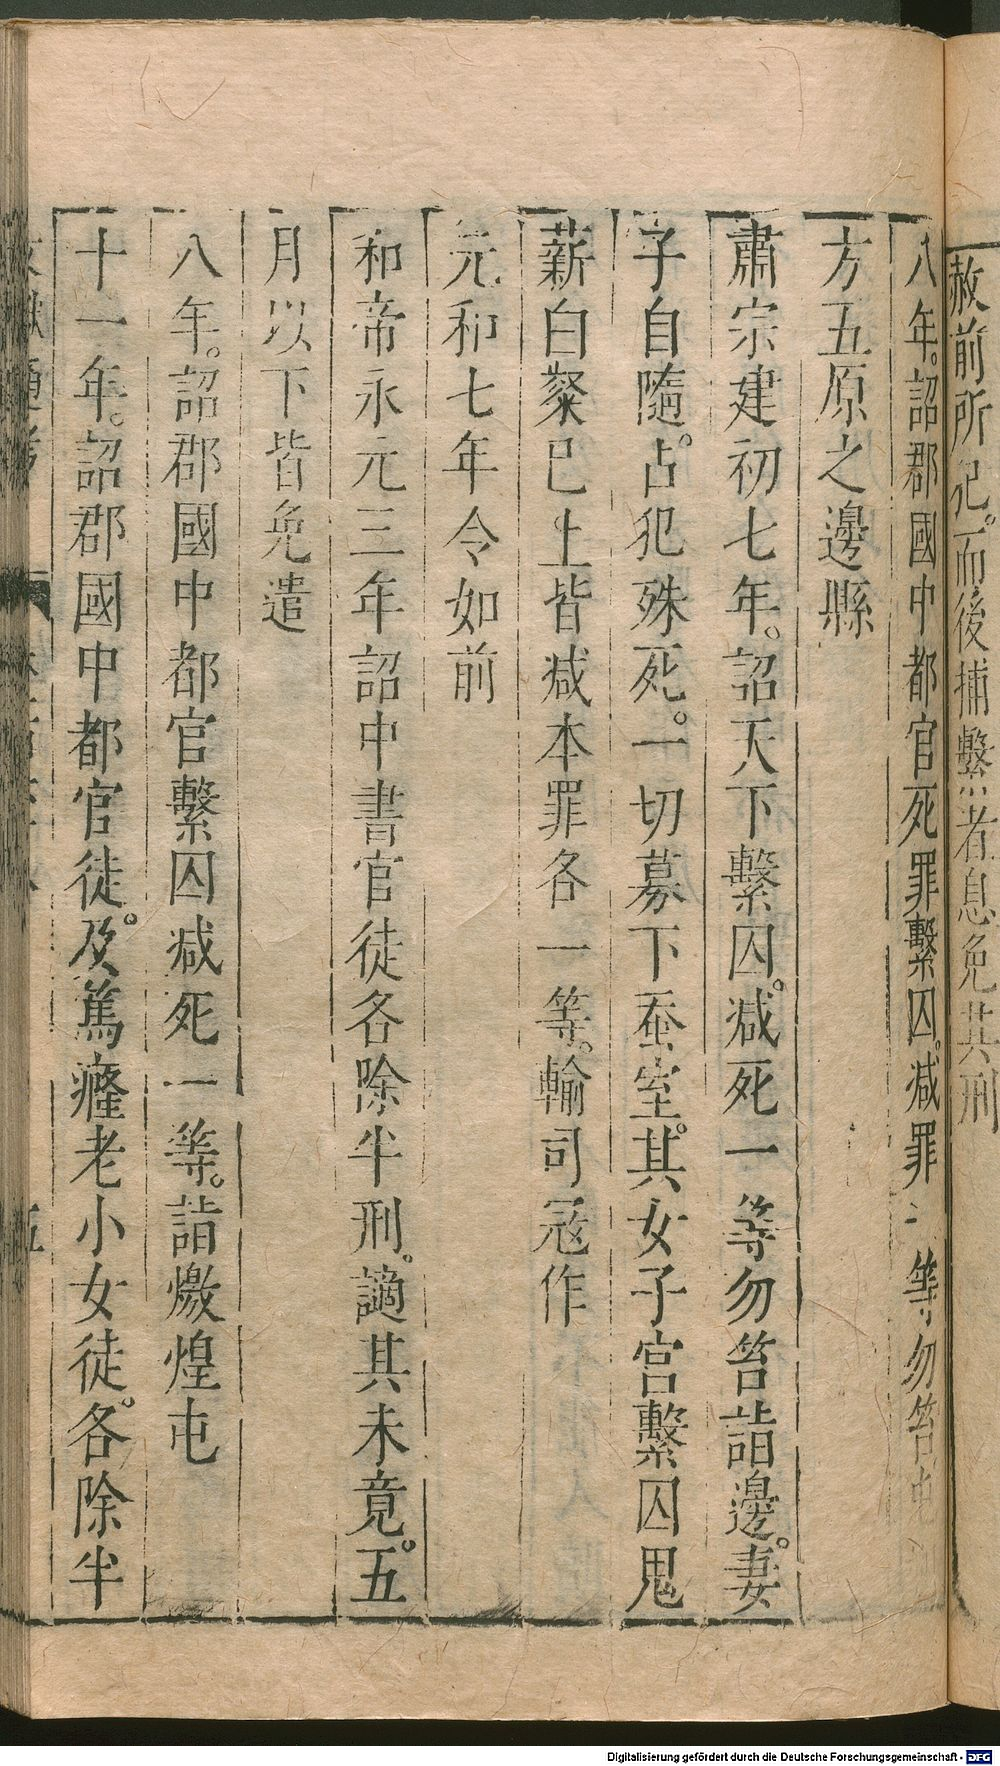 赦前所犯。而後捕繫者息免其刑
八年。詔郡國中都官死罪繫囚。減罪一等勿笞屯
方五原之邊縣
肅宗建初七年。詔天下繫囚。減死一等勿笞詣邊。妻
子自隨。占犯殊死。一切募下蚕室。其女子宮繫囚鬼
薪白粲已上皆減本罪各一等。輸司冦作
元和七年令如前
和帝永元三年詔中書官徒各除半刑。謫其未竟。五
月以下皆免遣
八年。詔郡國中都官繫囚減死一等。詣燉煌屯
十一年。詔郡國中都官徒。及篤癃老小女徒。各除半
Digitalisierung gefördert durch die Deutsche Forschungsgemeinschaft - DFG